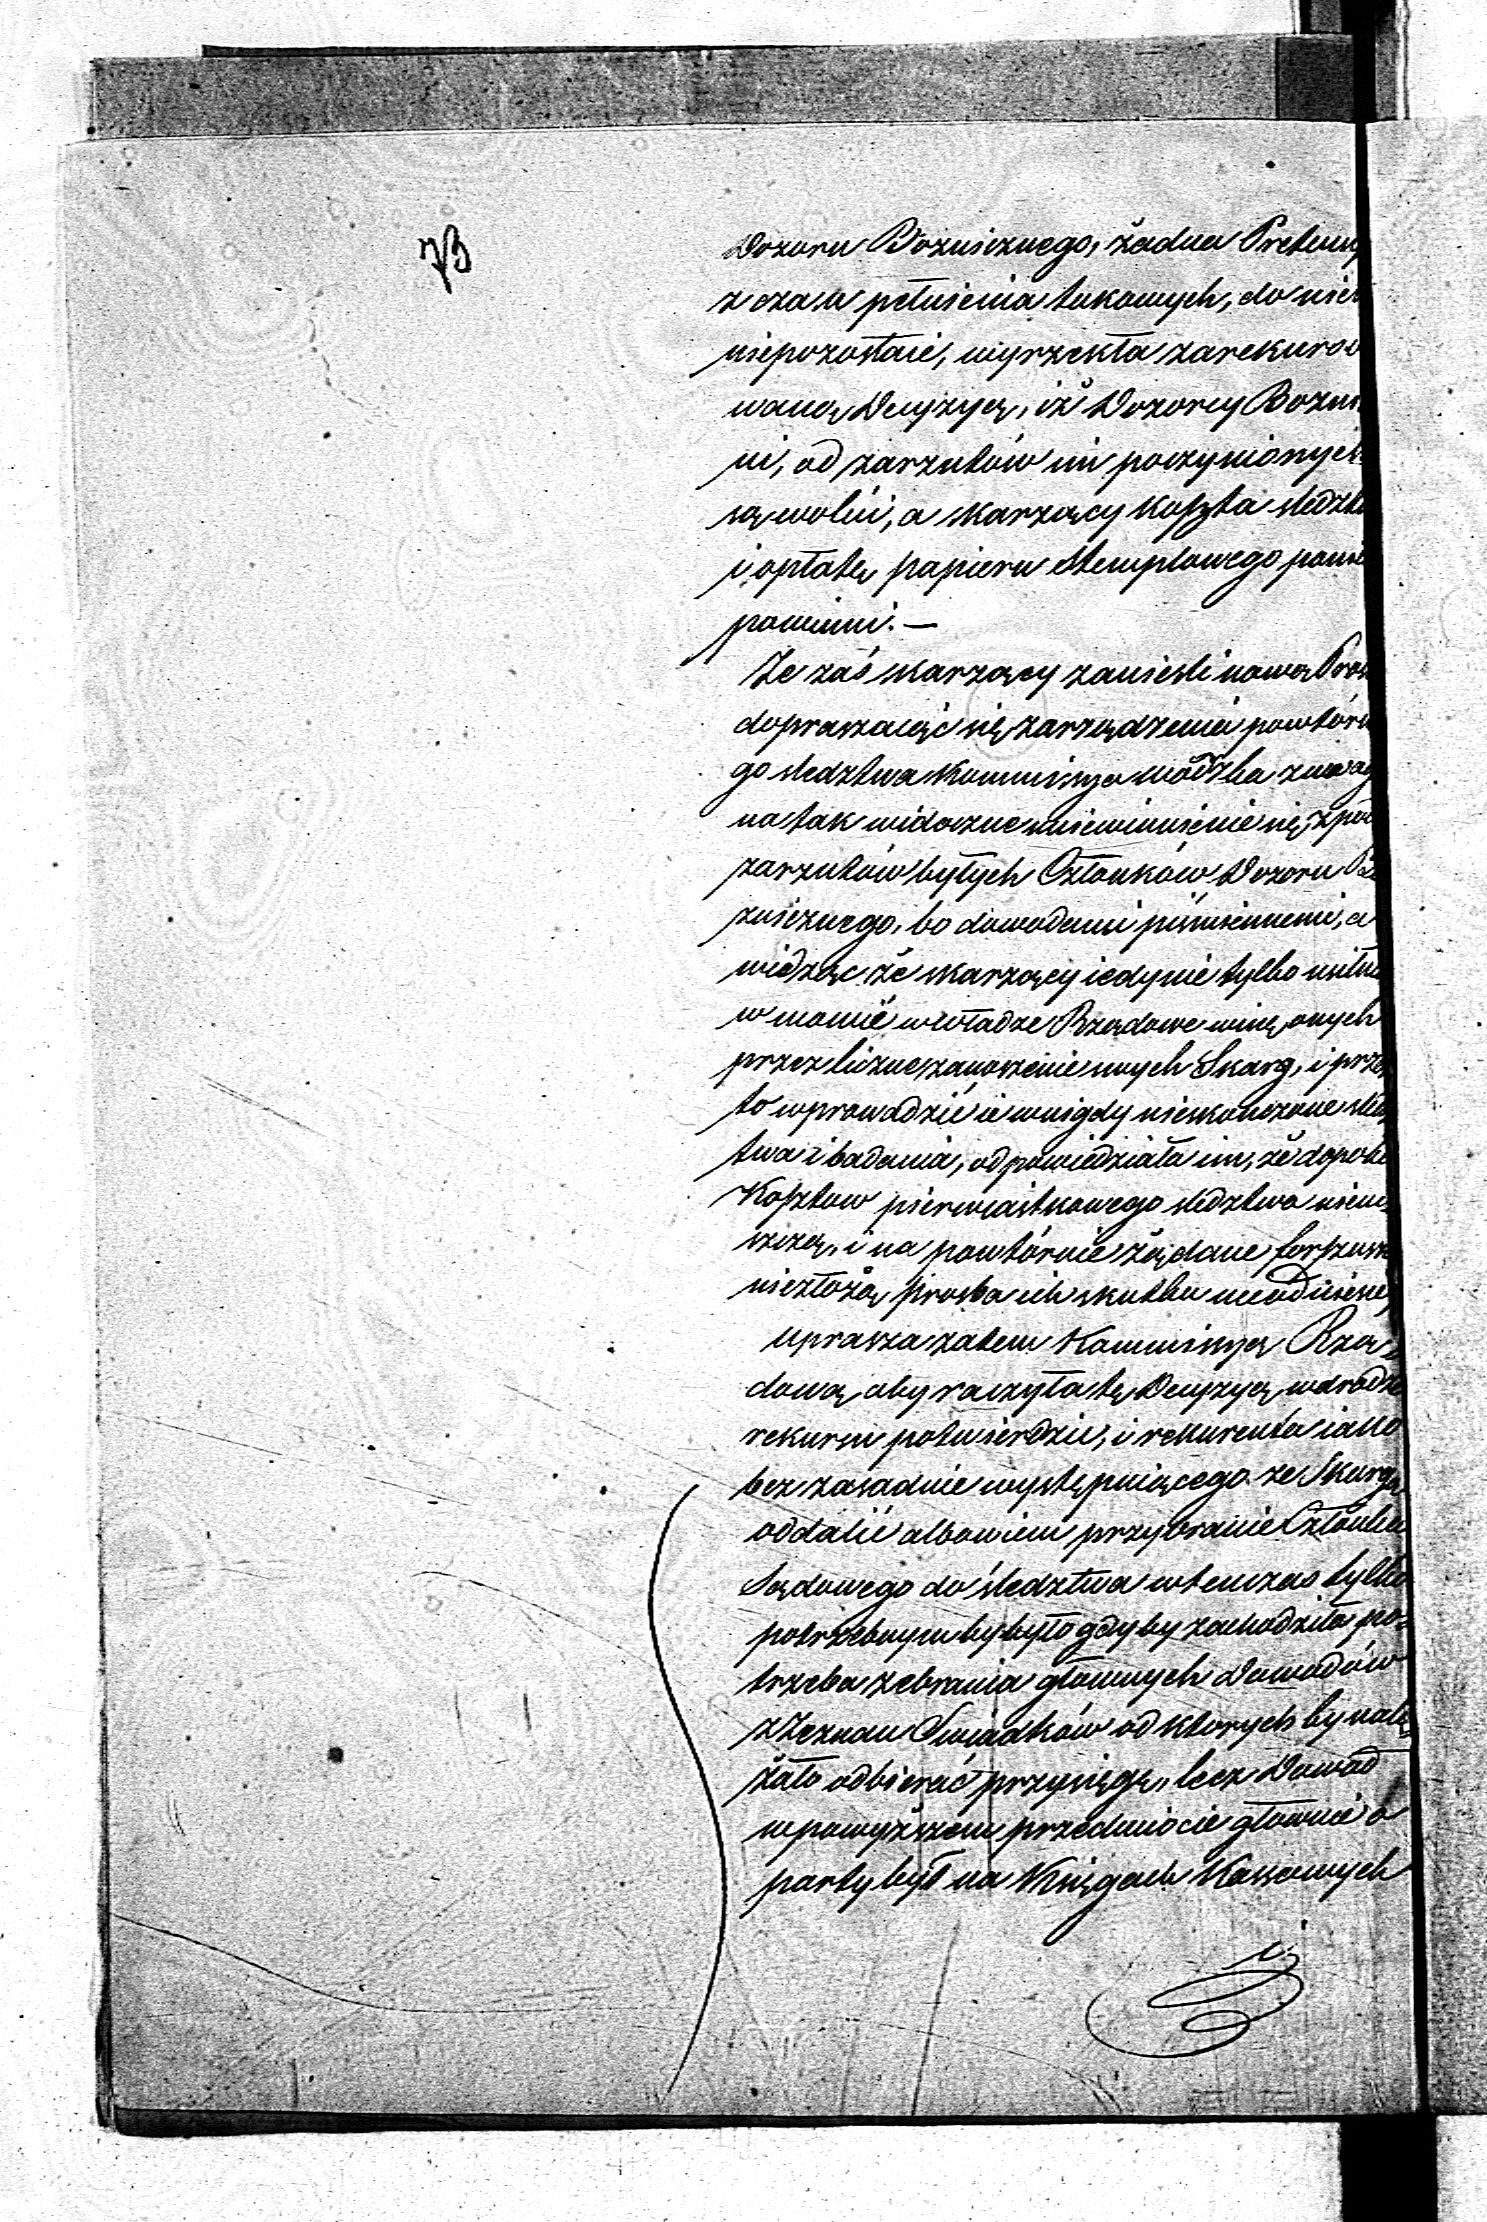 Dozoru Bozniczego, żadna Preten
z czasu pełnienia takowych, do nich
niepozostaie, wyrzekła zarekurso
waną Decyzyą, iż Dozorcy Bozni
ni, od zarzutów im poczynionych
są wolni, a skarzący Koszta sledzt
i opłatę papieru Stemplowego ponie
powinni. —
Ze zaś skarzący zanieśli nową Proś
dopraszaiąc się zarządzenia powtórn
go sledztwa Kommissya wódzka zuwag
na tak widoczne uniewinnienie się, z pod
zarzutów byłych Członków Dozoru Bo
zniczego, bo dowodami piśmiennemi, a
widząc że skarzący iedynie tylko usiłu
w mowić w władze Rządowe winę onych
przez liczne zanoszenie nowych Skarg, i prze
to wprowadzić ie w nigdy nieskończone sled
twa i badania, odpowiedziała im, że dopoki
Kosztow pierwiastkowego sledztwa nieui
szczą, i na powtórnie żądane forszuss
niezłożą, prosba ich skutku nieodniesie,
uprasza zatem Kommissyą Rzą-
dową, aby raczyła tę Decyzyą w drodze
rekursu potwierdzic, i rekurenta iako
bezzasadnie występuiącego ze Skargą
oddalić albowiem przybranie Członka
Sądowego do śledztwa wtenczas tylko
potrzebnym by było gdyby zachodziła po-
trzeba zebrania głównych Dowodów
z Zeznan Swiadków od ktorych by nale
żało odbierać przysięgę, lecz Dowód
w powyższem przedmiocie głównie o
party był na Księgach Kassowych
i